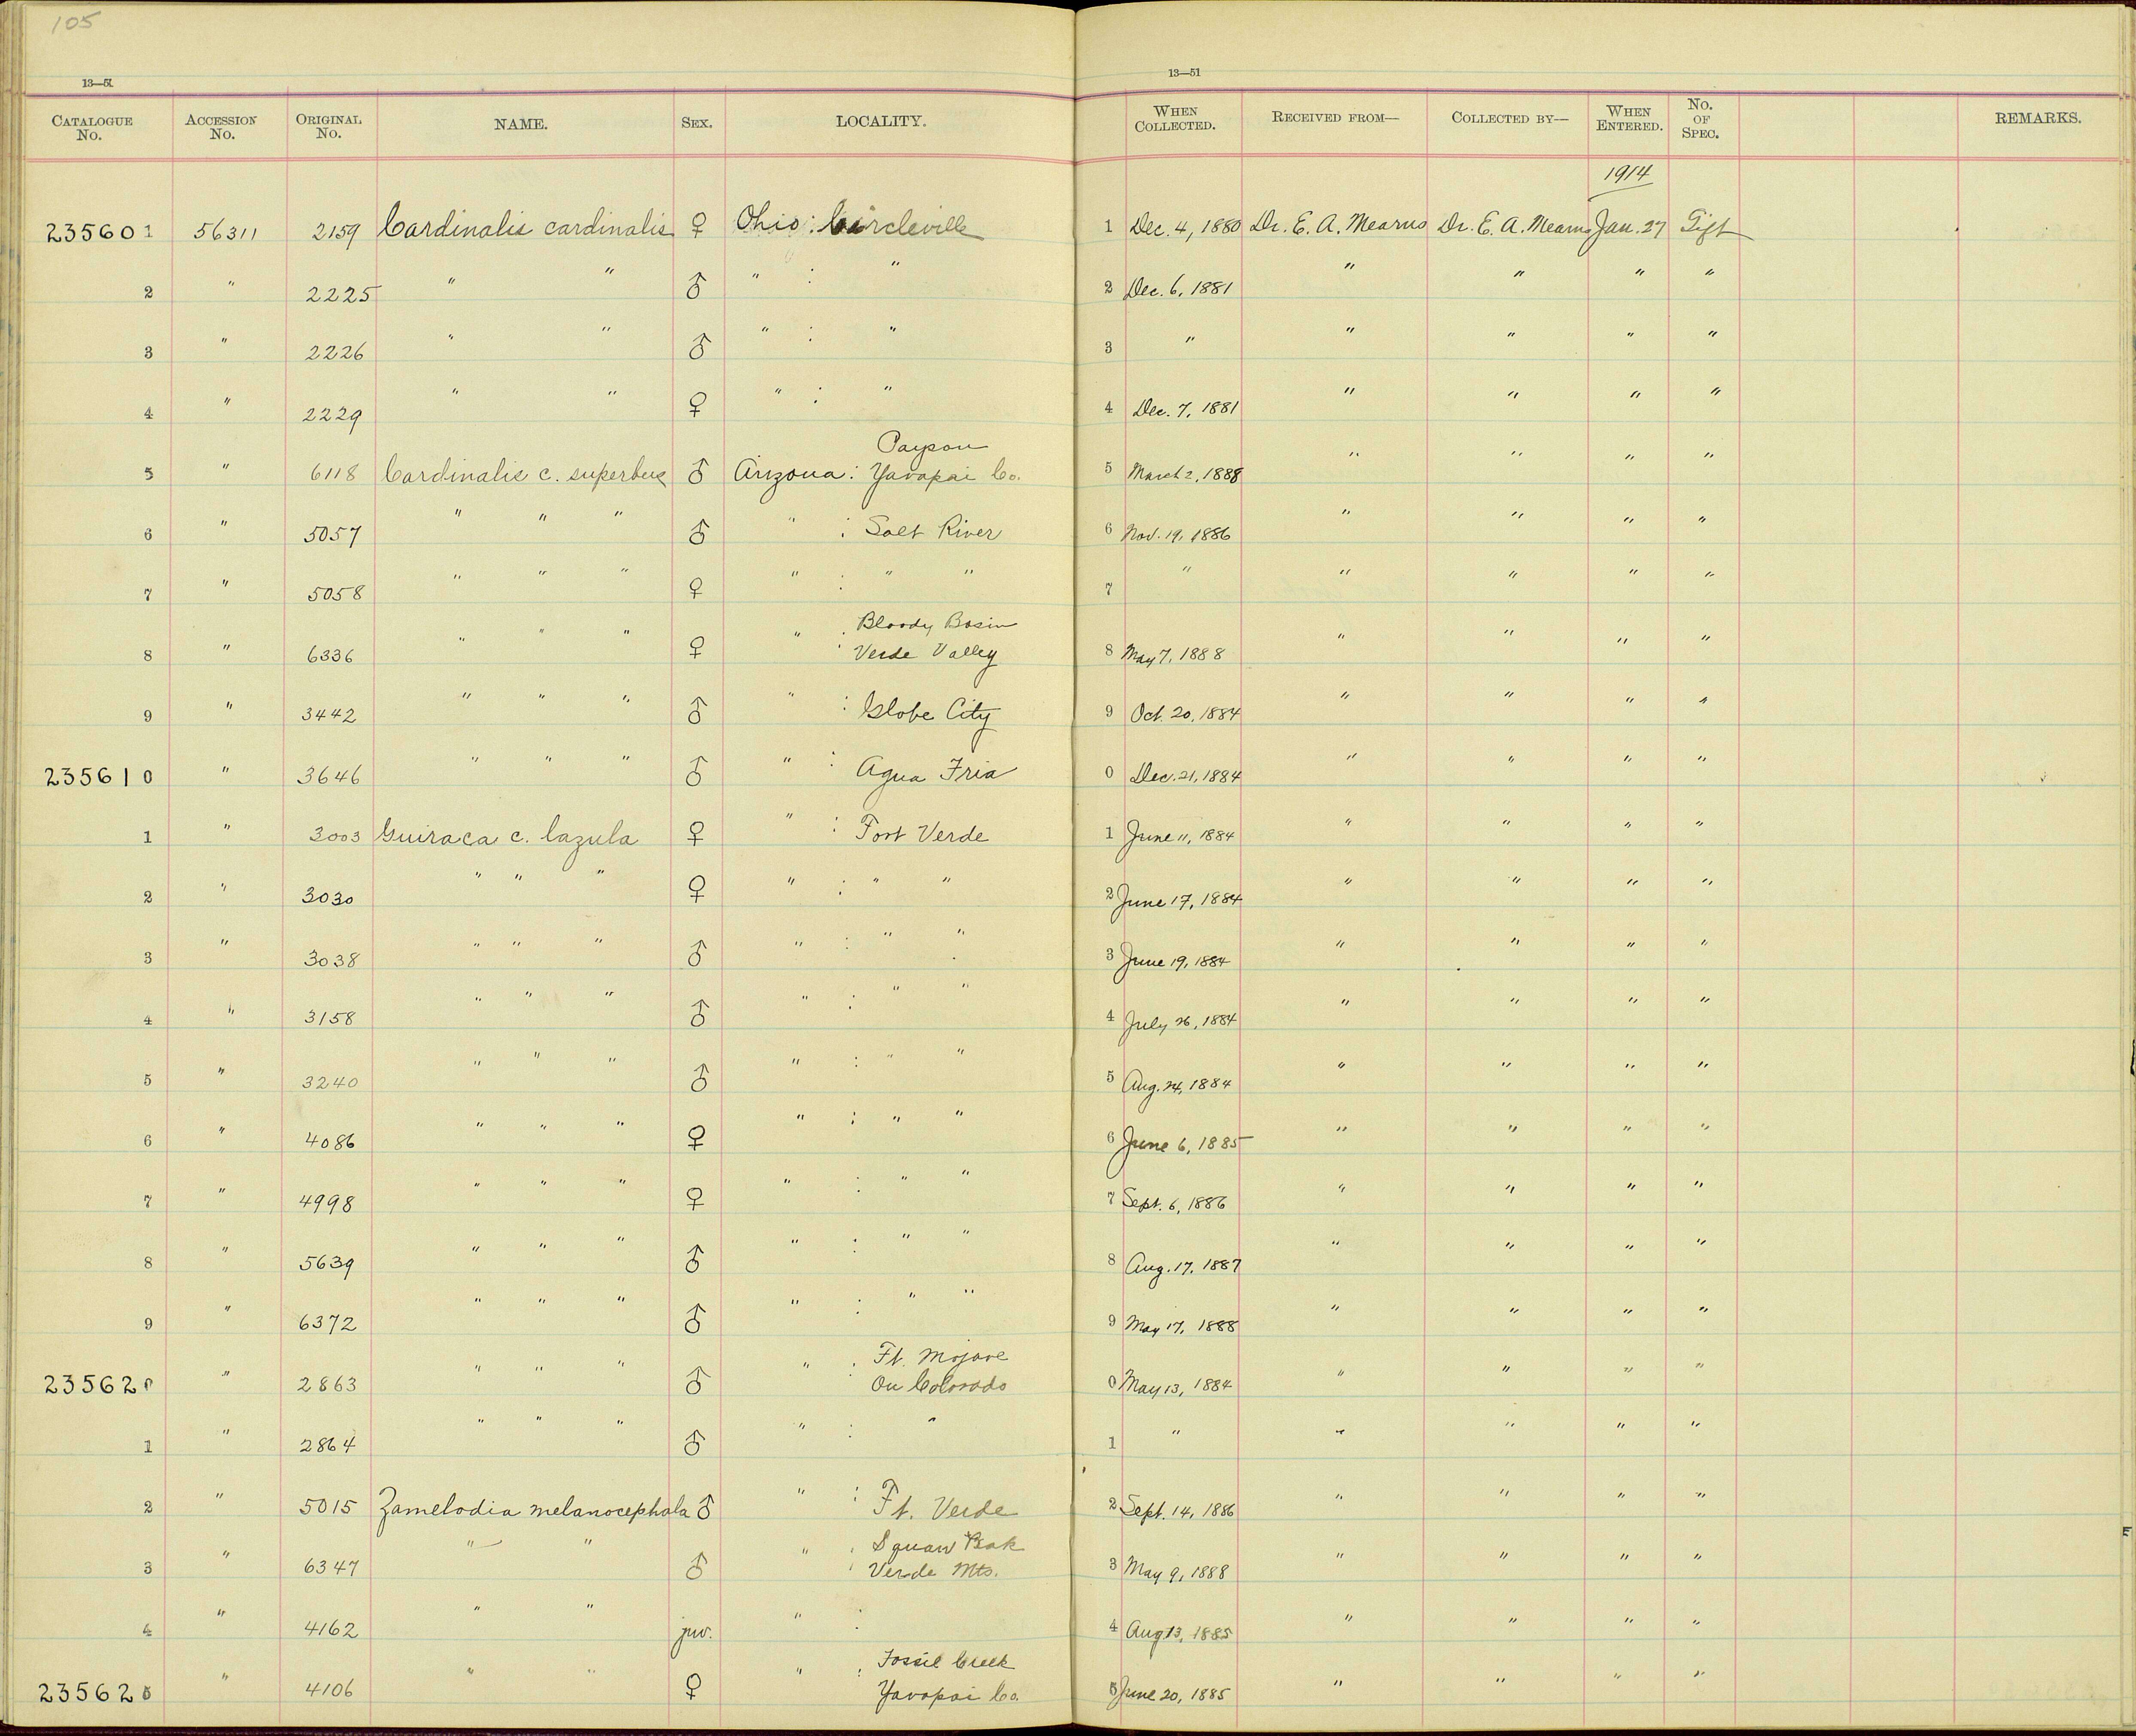 105
13—51
13—51
CATALOGUE No. ACCESSION No. ORIGINAL No. NAME. SEX. LOCALITY. WHEN COLLECTED. RECEIVED FROM— COLLECTED BY— WHEN ENTERED. No. OF SPEC. REMARKS.
1914
235601 56311 2159 Cardinalis cardinalis ♀ Ohio : Circleville 1 Dec. 4, 1880 Dr. E. A. Mearns Dr. E. A. Mearns Jan. 27 Gift
2 " 2225 " " ♂ " : " 2 Dec. 6, 1881 " " " "
3 " 2226 " " ♂ " : " 3 " " " " "
4 " 2229 " " ♀ " : " 4 Dec. 7, 1881 " " " "
Payson
5 " 6118 Cardinalis c. superbus ♂ Arizona : Yavapai Co. 5 March 2, 1888 " " " "
6 " 5057 " " " ♂ " : Salt River 6 Nov. 19, 1886 " " " "
7 " 5058 " " " ♀ " : " " 7 " " " " "
Bloody Basin
8 " 6336 " " " ♀ " : Verde Valley 8 May 7, 1888 " " " "
9 " 3442 " " " ♂ " : Globe City 9 Oct. 20, 1884 " " " "
235610 " 3646 " " " ♂ " : Agua Fria 0 Dec. 21, 1884 " " " "
1 " 3003 Guiraca c. lazula ♀ " : Fort Verde 1 June 11, 1884 " " " "
2 " 3030 " " " ♀ " : " " 2 June 17, 1884 " " " "
3 " 3038 " " " ♂ " : " " 3 June 19, 1884 " " " "
4 " 3158 " " " ♂ " : " " 4 July 26, 1884 " " " "
5 " 3240 " " " ♂ " : " " 5 Aug. 24, 1884 " " " "
6 " 4086 " " " ♀ " : " " 6 June 6, 1885 " " " "
7 " 4998 " " " ♀ " : " " 7 Sept. 6, 1886 " " " "
8 " 5639 " " " ♂ " : " " 8 Aug. 17, 1887 " " " "
9 " 6372 " " " ♂ " : " " 9 May 17, 1888 " " " "
Ft. Mojave
235620 " 2863 " " " ♂ " : On Colorado 0 May 13, 1884 " " " "
1 " 2864 " " " ♂ " : " 1 " " " " "
2 " 5015 Zamelodia melanocephala ♂ " : Ft. Verde 2 Sept. 14, 1886 " " " "
Squaw Peak
3 " 6347 " " ♂ " : Verde Mts. 3 May 9, 1888 " " " "
4 " 4162 " " juv. " : 4 Aug 13, 1885 " " " "
Fossil Creek
235625 " 4106 " " ♀ " : Yavapai Co. 5 June 20, 1885 " " " "